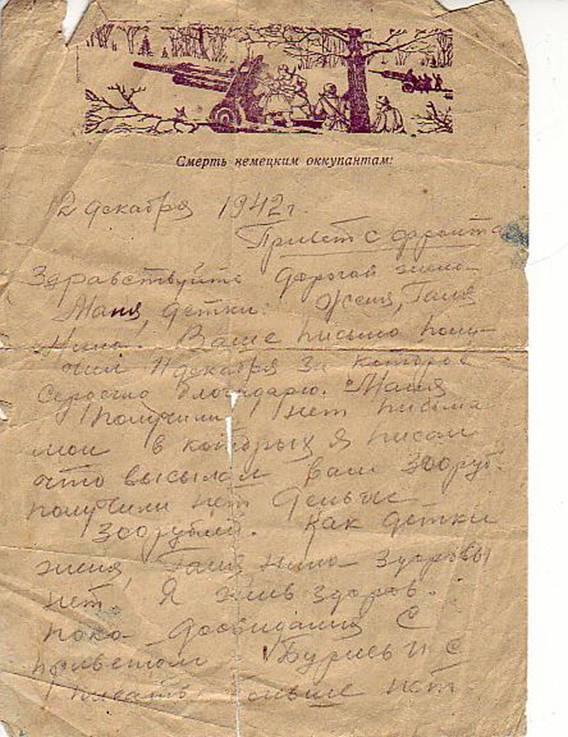 Смерть немецким оккупантам!
12 декабря 1942 г.
Привет с фронта
Здравствуйте дорогой жена
Маня, детки: Женя, Галя
Нина. Ваше письмо полу-
чил 11 декабря за которое
сердечно благодарю. Маня
получили нет письма
мои в которых я писал
что высылал вам 300 руб.
получили нет деньги
300 рублей. Как детки
женя, Галя нина здоровы
нет. Я жив здоров.
пока досвидания С
приветом Буриев И С
писать больше нет.